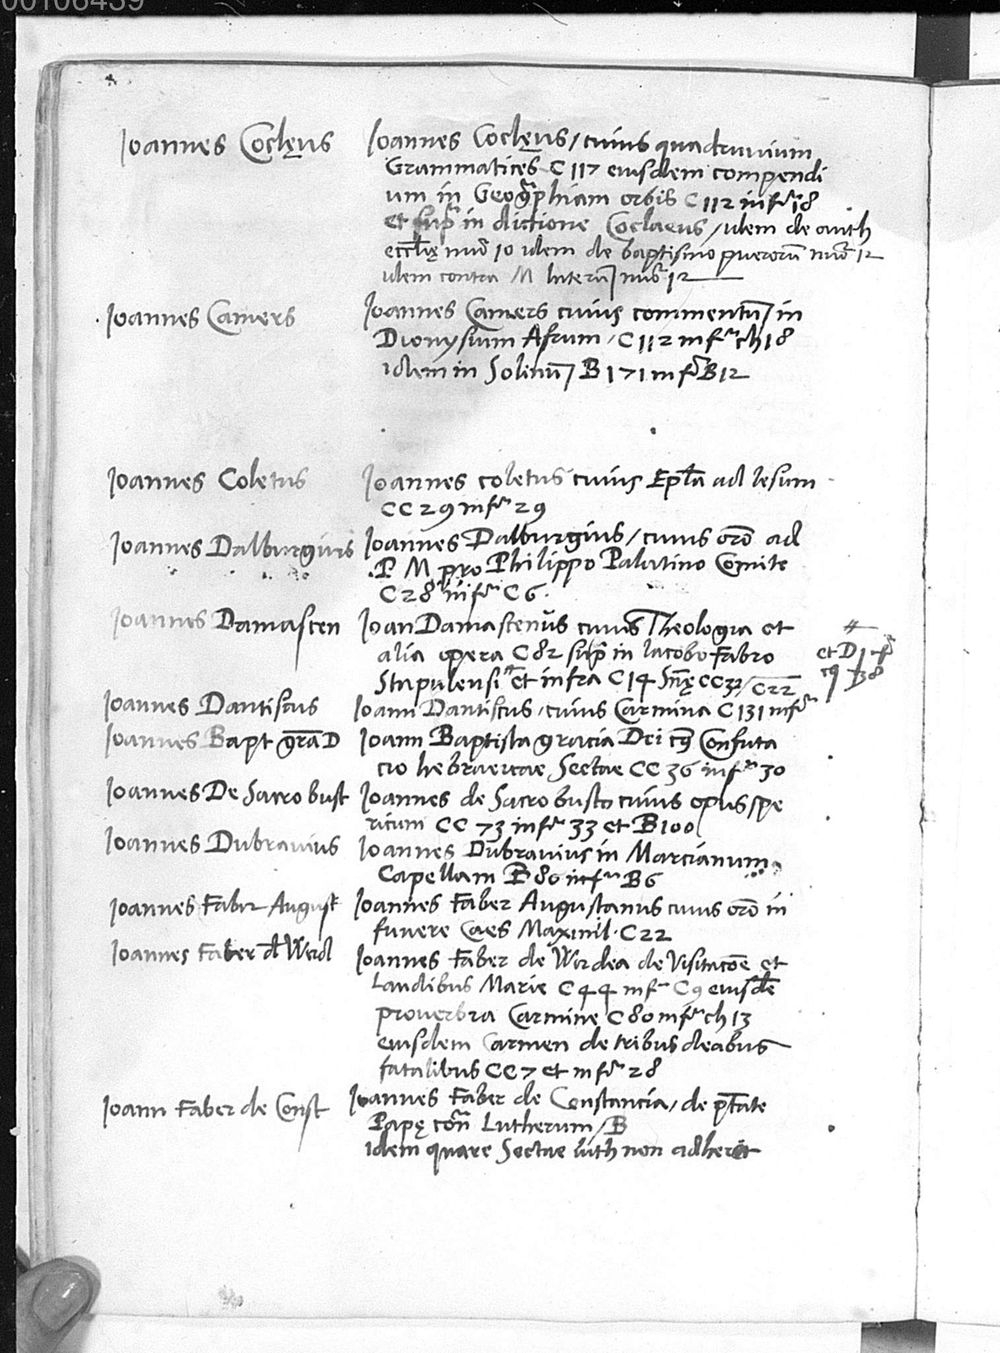 00106439
Ioannes Coclęus Ioannes Coclęus / cuius quadruuium
Grammatices C 117 eiusdem compendi
um in Geogr̃phiam orbis C 112 inf̃ 18
et sup̃ in dictione Coclaeus / idem de auth
eccl̃ę nuõ 10 idem de baptismo puerorũ nuõ 12
idem contra M luterũ nuõ 12
Ioannes Camers Ioannes Camers cuius commentũ in
Dionysium Afrum / C 112 inf̃ ch 18
idem in Solinũ B 171 inf̃ B 12
Ioannes Coletus Ioannes coletus cuius Epl̃a ad Iesum
CC 29 inf̃ 29
Ioannes Dalburgius Ioannes Dalburgius / cuius orõ ad
P M pro Philippo Palatino Comite
C 28 inf̃ C 6
Ioannes Damascen Ioan Damascenus cuius Theologia et
alia opera C 82 sup̃ in Iacobo Fabro #
Stapulensi et infra C 14 CC 33 / C 22 et D 1
Ioannes Dantiscus Ioann Dantiscus / cuius Carmina C 131 inf̃
Ioannes Bapt gr̃a D Ioann Baptista gracia Dei Confuta
cio hebraeicae Sectae CC 36 inf̃ 30
Ioannes De Sacro bust Ioannes de Sacro busto cuius opus spe
ricum CC 73 inf̃ 33 et B 100
Ioannes Dubrauius Ioannes Dubrauius in Marcianum
Capellam B 86 inf̃ B 6
Ioannes Faber August Ioannes Faber Augustanus cuius orõ in
funere Caes Maximil. C 22
Ioannes Faber d Werd Ioannes Faber de Werdea de Visitacõe et
laudibus Marie C 44 inf̃ C 9 eiusdẽ
prouerbia Carmine C 80 inf̃ ch 13
eiusdem Carmen de tribus deabus
fatalibus CC 7 et inf̃ 28
Ioann Faber de Const Ioannes Faber de Constancia / de pt̃ate
Papę cõn̄ Lutherum / B
idem quare Sectae luth non adheret